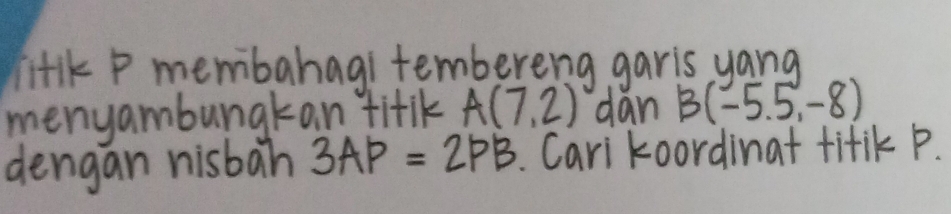 Titik P membahagi tembereng garis yang
menyambungkan titik A(7,2) dan B(-5.5,-8)
dengan nisbah 3AP = 2PB. Cari koordinat titik P.